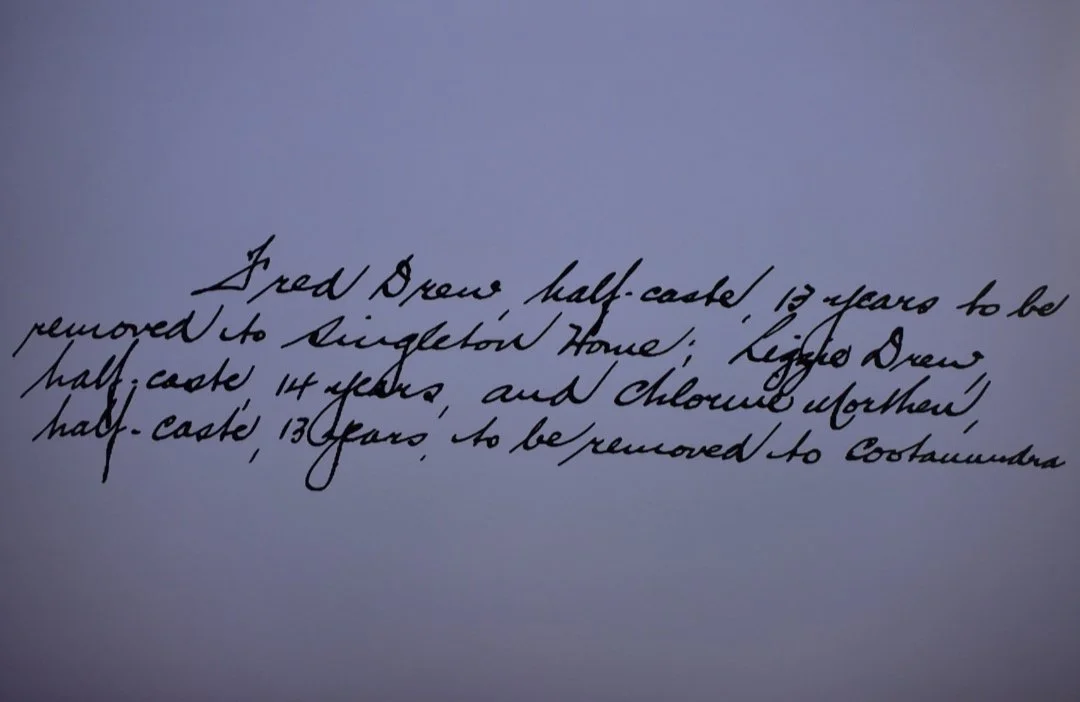 Fred Drew, half-caste, 13 years to be
removed to Singleton Home; Lizzie Drew,
half-caste, 14 years, and Chlorine Morthen,
half-caste, 13 years, to be removed to Cootamundra